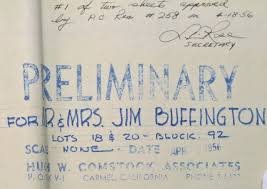 #1 of two sheets approved
by P.C. Res # 258 on 4-18-56
SECRETARY
PRELIMINARY
FOR MR. & MRS. JIM BUFFINGTON
LOTS 18 & 20 - BLOCK 92
SCALE NONE - DATE APR 1956
HUGH W. COMSTOCK ASSOCIATES
P.O. BOX CARMEL, CALIFORNIA PHONE